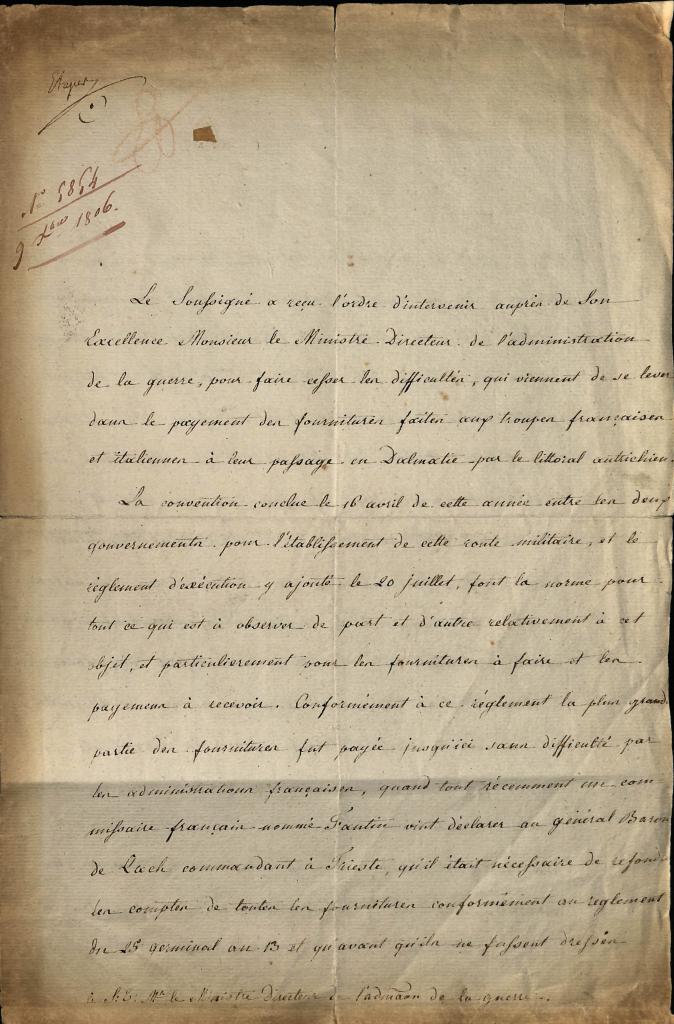 Etapes
N.º 5854
9 Xbre 1806.
Le Soussigné a reçu l'ordre d'intervenir auprès de Son
Excellence Monsieur le Ministre Directeur de l'administration
de la guerre, pour faire cesser les difficultés, qui viennent de se lever
dans le payement des fournitures faites aux troupes françaises
et italiennes à leur passage en Dalmatie par le littoral autrichien.
La convention conclue le 16 avril de cette année entre les deux
gouvernements pour l'établissement de cette route militaire, et le
règlement d'exécution y ajouté le 20 juillet, font la norme pour
tout ce qui est à observer de part et d'autre relativement à cet
objet, et particulierement pour les fournitures à faire et les
payemens à recevoir. Conformément à ce réglement la plus grande
partie des fournitures fut payée jusqu'ici sans difficulté par
les administrations françaises, quand tout récemment un com-
missaire français nommé Fantin vint déclarer au général Baron
de Zach commandant à Trieste, qu'il était nécessaire de refondre
les comptes de toutes les fournitures conformément au reglement
du 25 germinal an 13 et qu'avant qu'ils ne fussent dressés
à S: E: Mr le Ministre Directeur de l'admaon de la guerre.